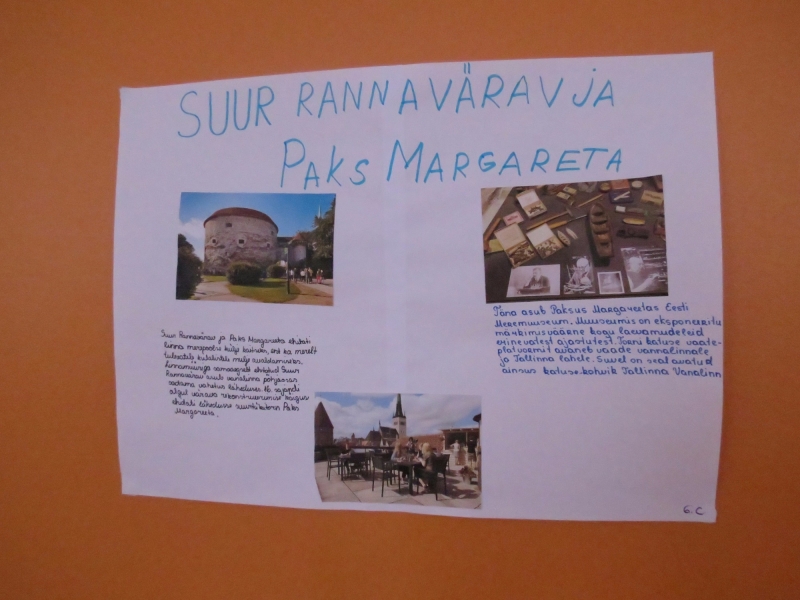 SUUR RANNAVÄRAV JA
PAKS MARGARETA
Suur Rannavärav ja Paks Margareeta ehitati
linna merepoolse külje kaitseks, ent ka merelt
tulevatele külalistele mulje avaldamiseks.
Linnamüüriga samaaegselt ehitatud Suur
Rannavärav asub vanalinna põhjaosas
sadama vahetus läheduses. 16. sajandi
algul värava rekonstrueerimise käigus
ehitati lähedusse suurtükitorn Paks
Margareeta.
Täna asub Paksus Margareetas Eesti
Meremuuseum. Muuseumis on eksponeeritu
märkimisväärne kogu laevamudeleid
erinevatest ajastutest. Torni katuse vaate-
platvormilt avaneb vaade vannalinnale
ja Tallinna lahele. Suvel on seal avatud
ainus katuse-kohvik Tallinna Vanalinn
6. C